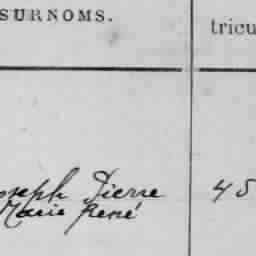 SURNOMS.
tricu
oseph Pierre 45
Marie René